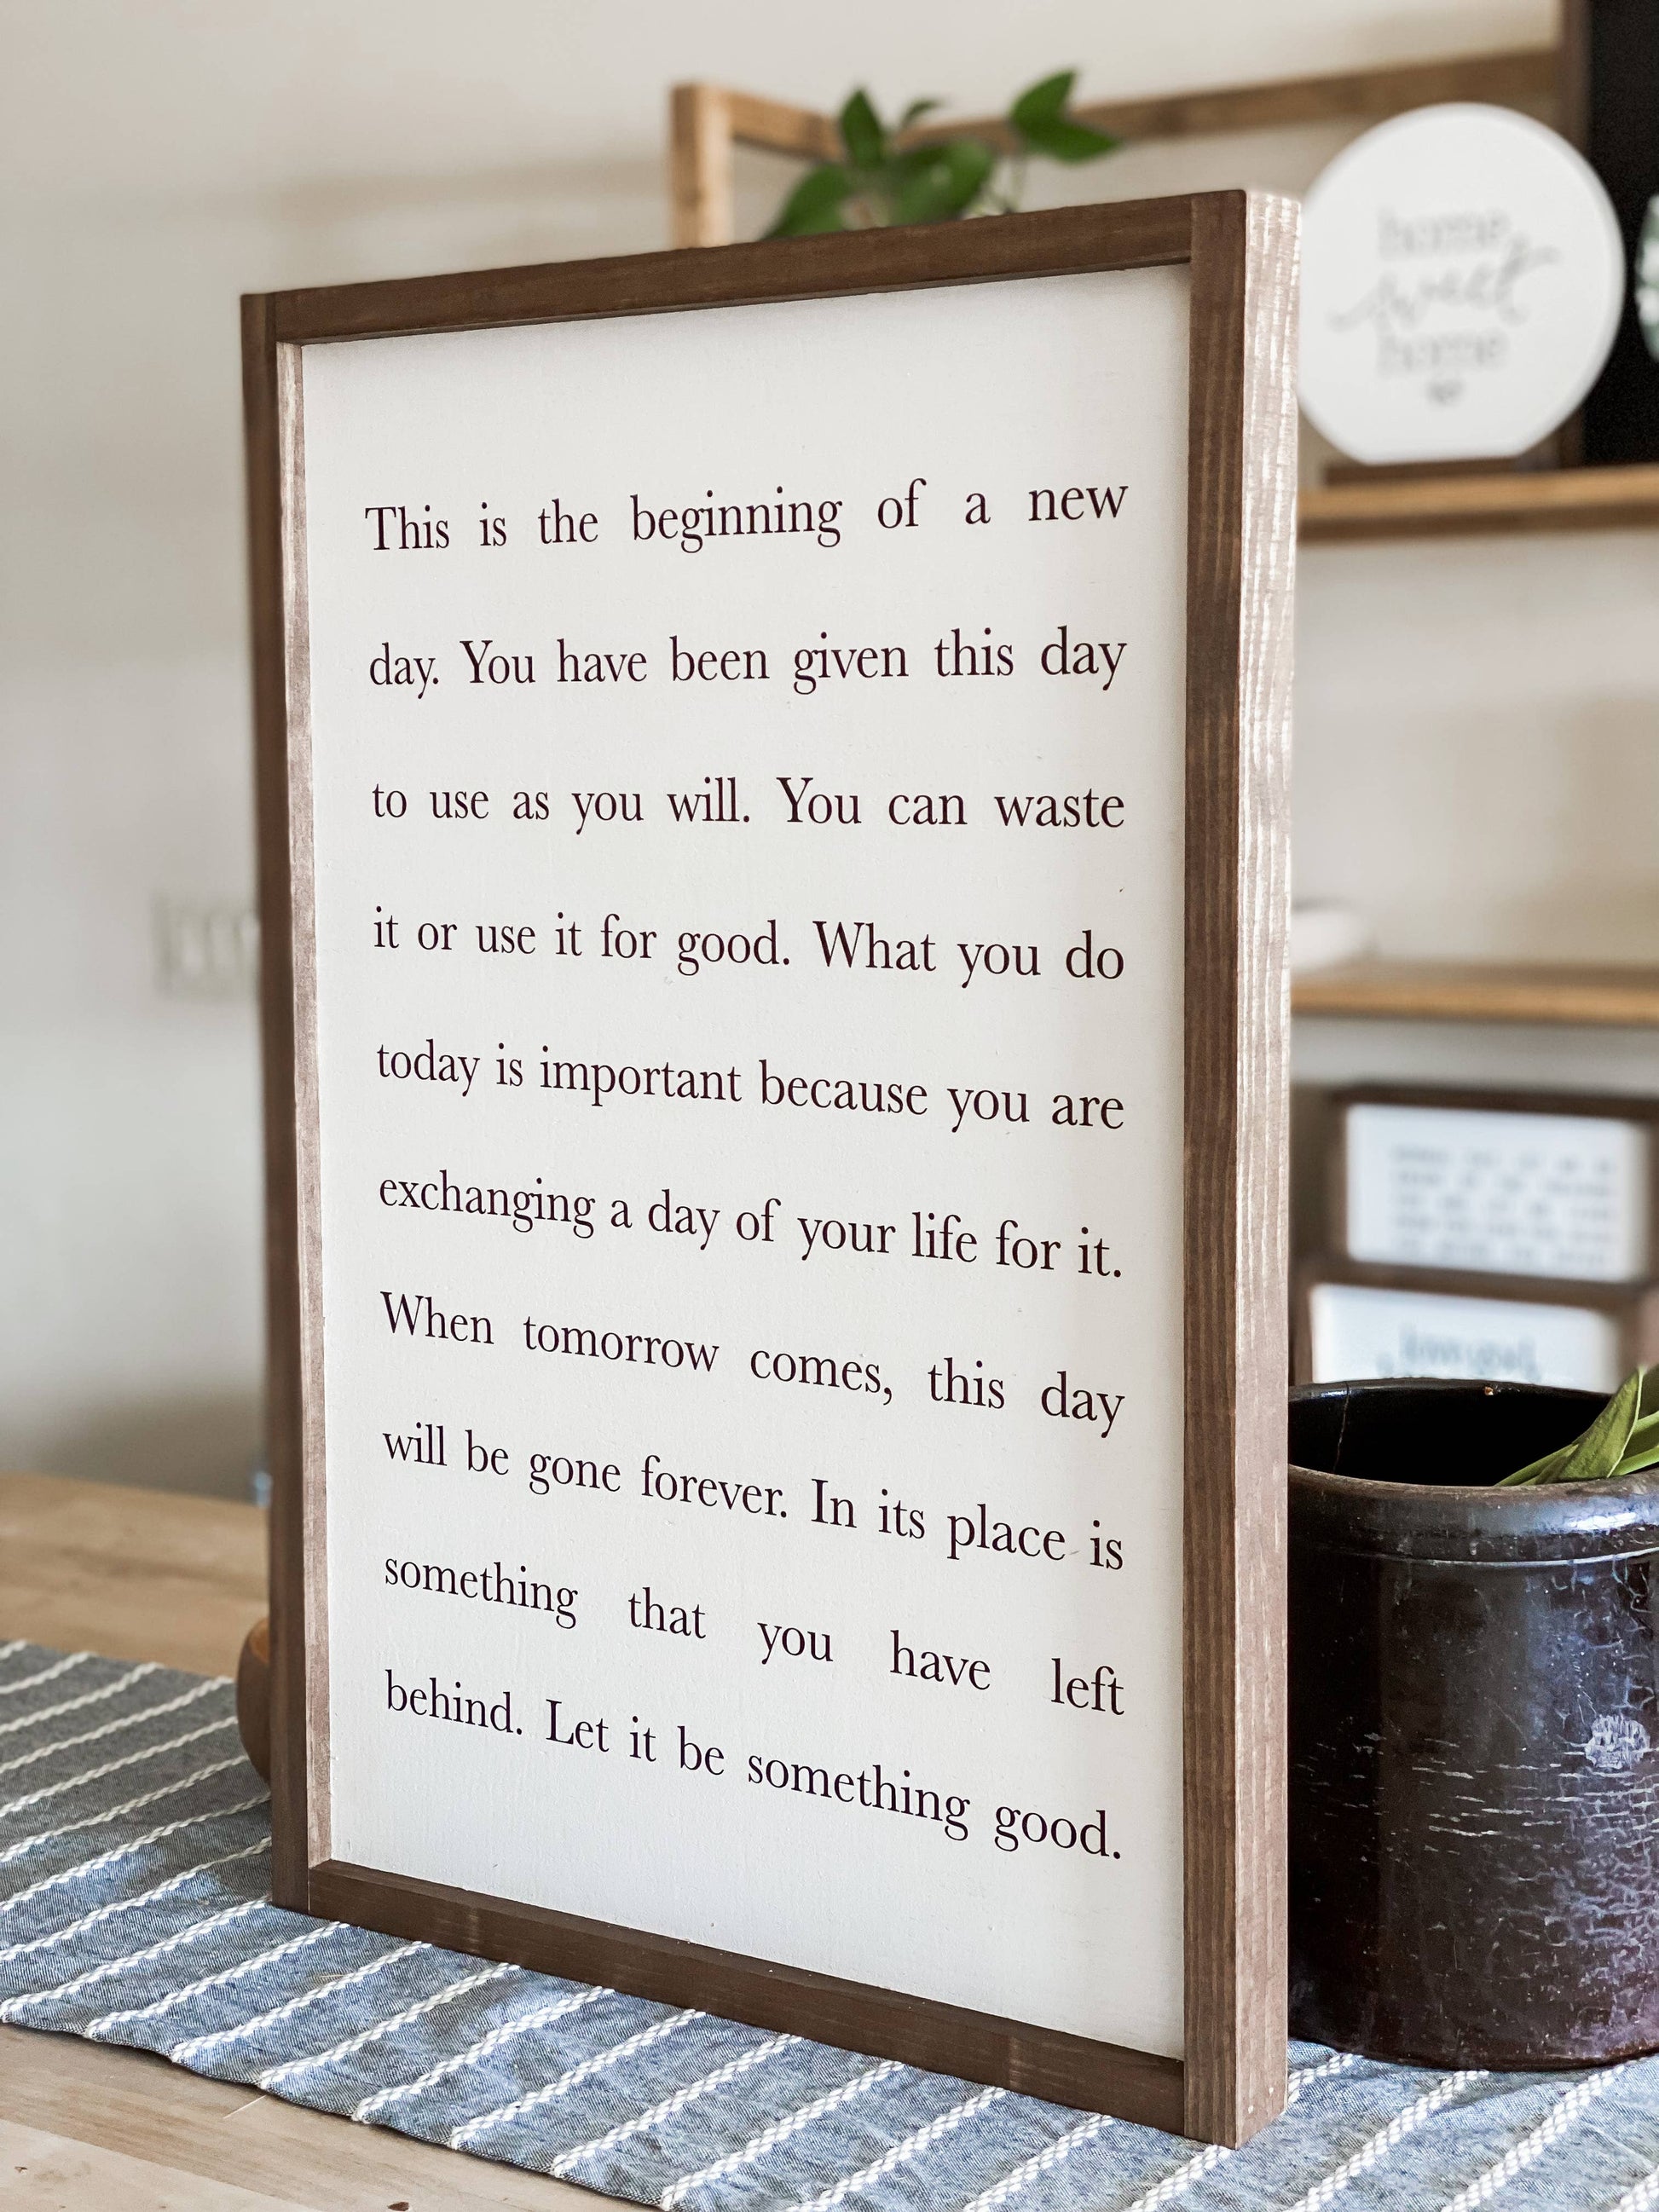 This is the beginning of a new
day. You have been given this day
to use as you will. You can waste
it or use it for good. What you do
today is important because you are
exchanging a day of your life for it.
When tomorrow comes, this day
will be gone forever. In its place is
something that you have left
behind. Let it be something good.
home
sweet
home